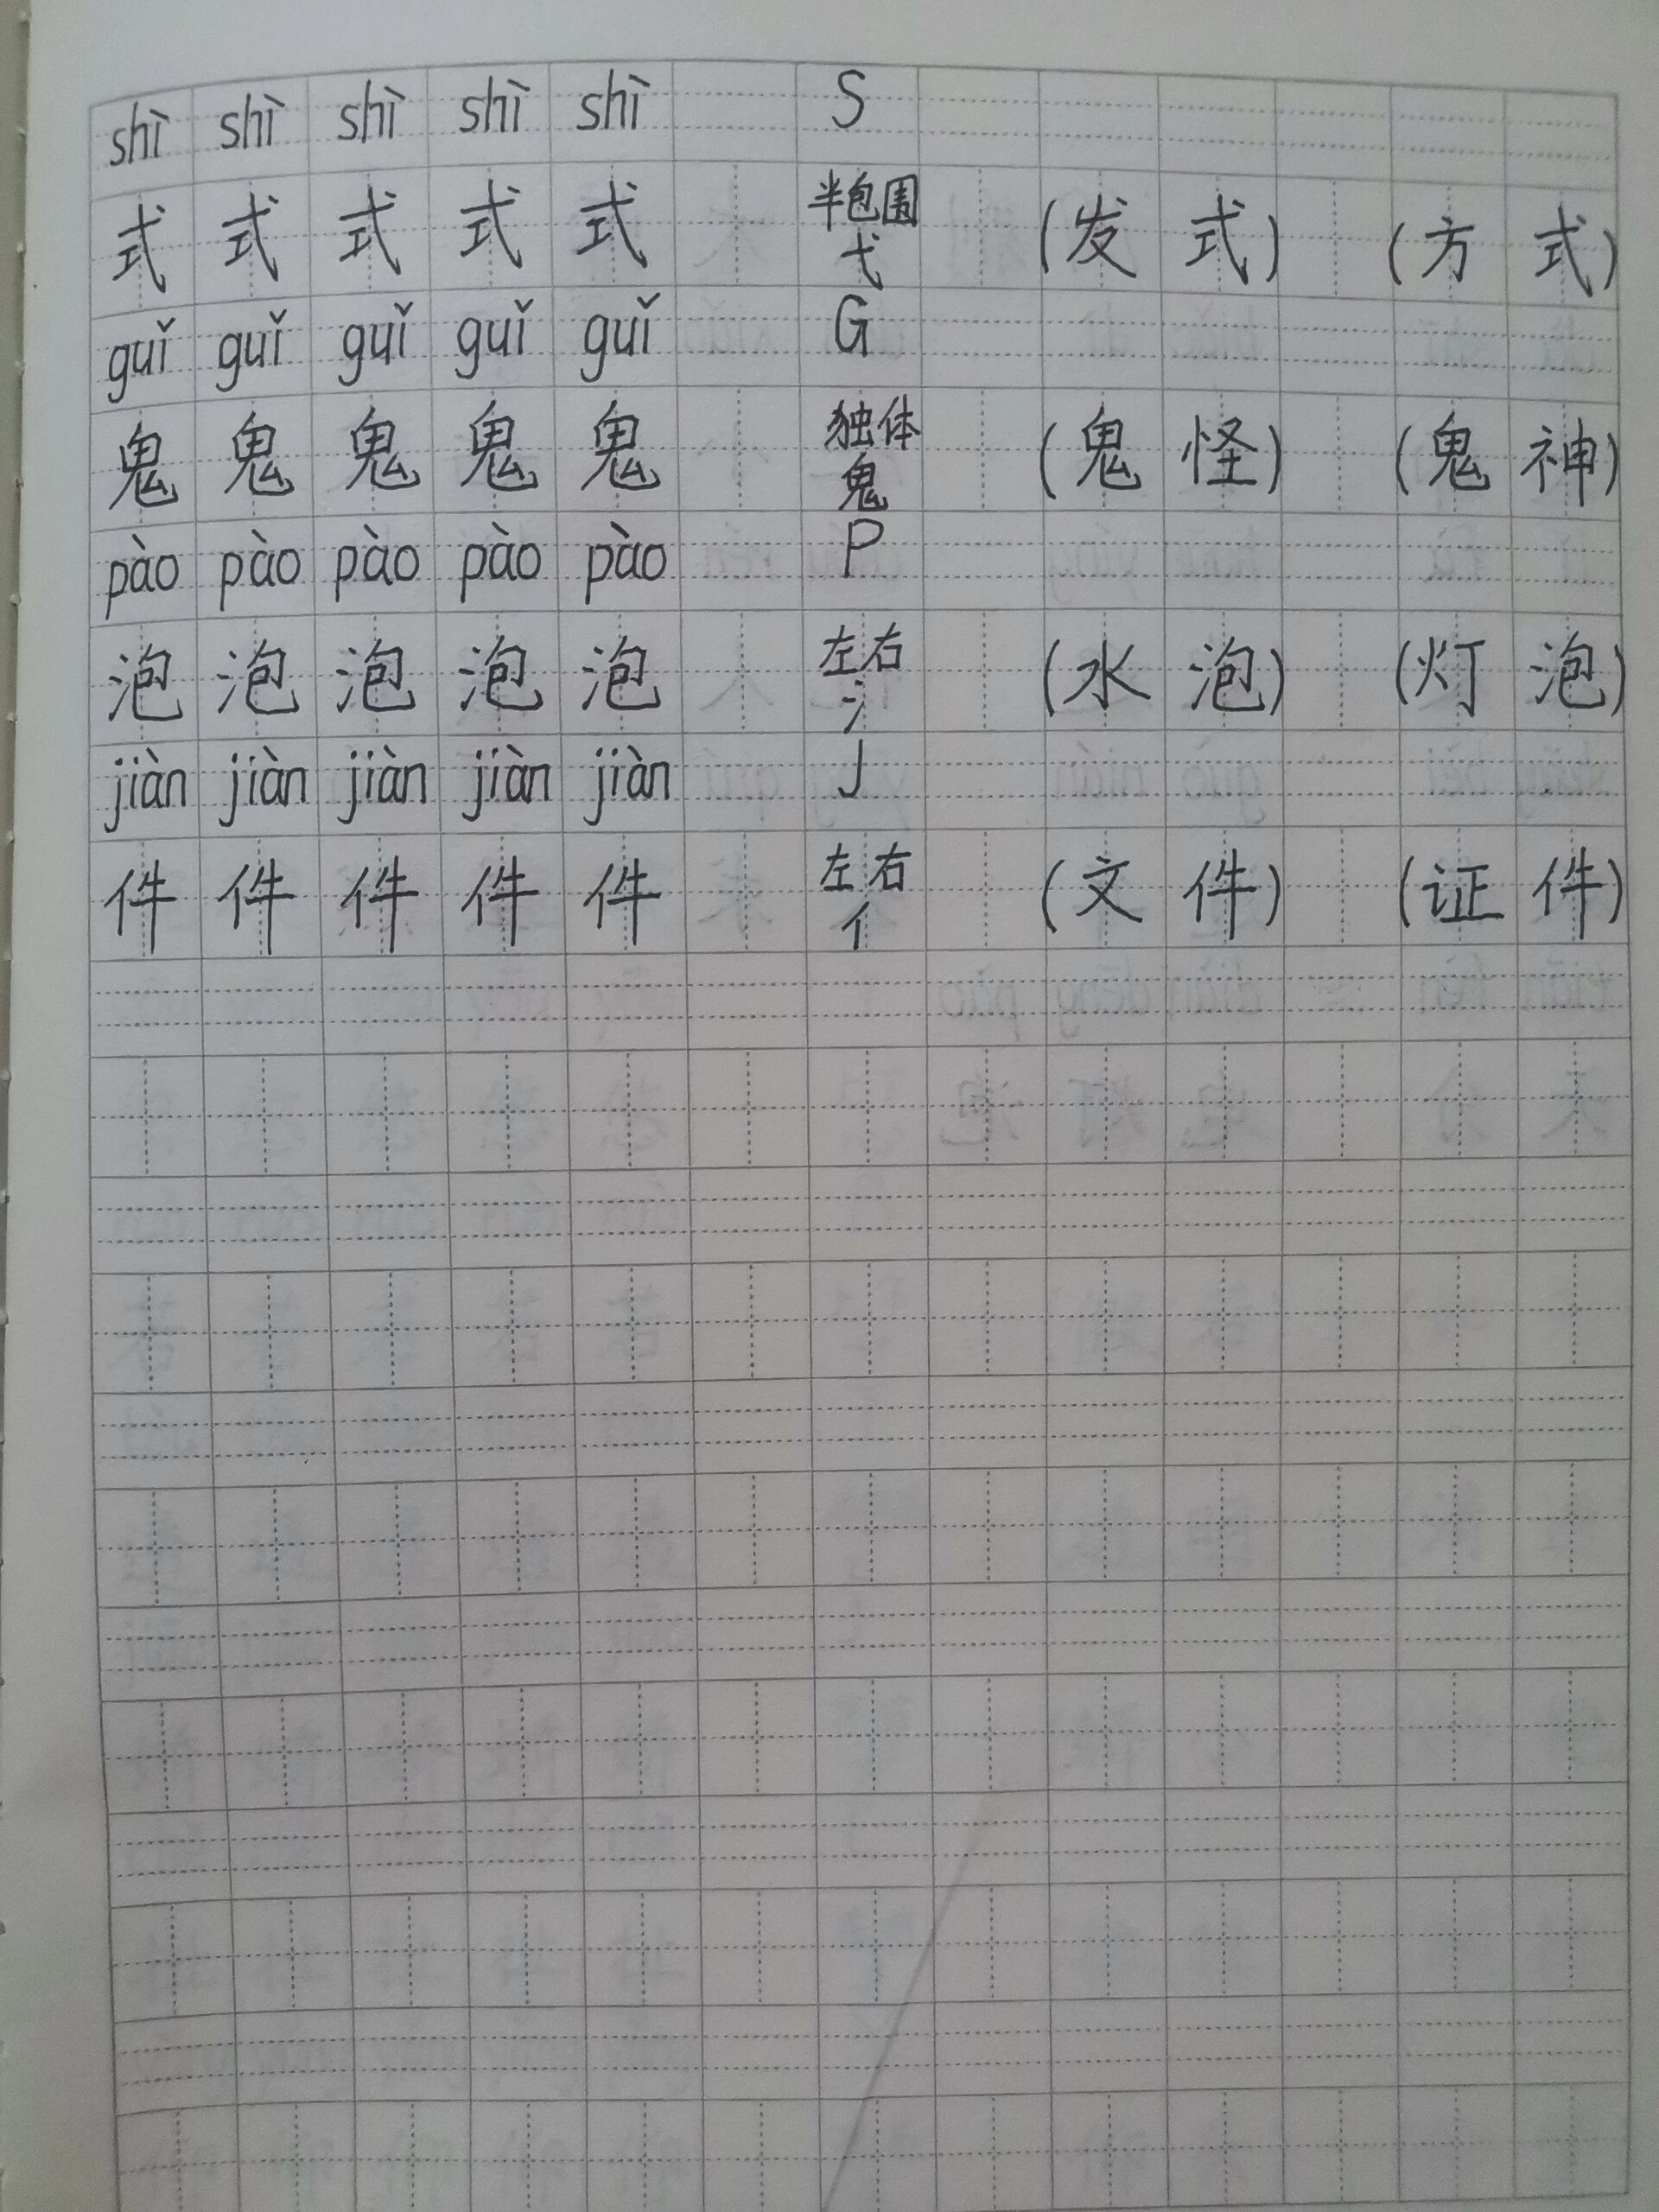 shì shì shì shì shì S
式 式 式 式 式 半包围 弋 (发 式) (方 式)
guǐ guǐ guǐ guǐ guǐ G
鬼 鬼 鬼 鬼 鬼 独体 鬼 (鬼 怪) (鬼 神)
pào pào pào pào pào P
泡 泡 泡 泡 泡 左右 氵 (水 泡) (灯 泡)
jiàn jiàn jiàn jiàn jiàn J
件 件 件 件 件 左右 亻 (文 件) (证 件)